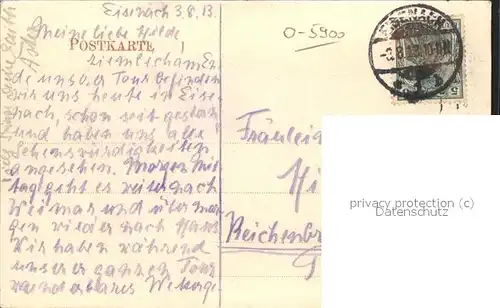 Eisenach 3.8.13.
Meine liebe Hilde
POSTKARTE
ziemlich am En-
de unserer Tour befinden
wir uns heute in Eise-
nach, schon seit gestern
und haben uns alle
Sehenswürdigkeiten
angesehen. Morgen Mit-
tag geht es weiter nach
Weimar und übermor-
gen wieder nach Haus
Wir haben während
unserer ganzen Tour
wunderbares
O-5900
Fräulein
Hi
Reichenbr
privacy protection (c)
Datenschutz